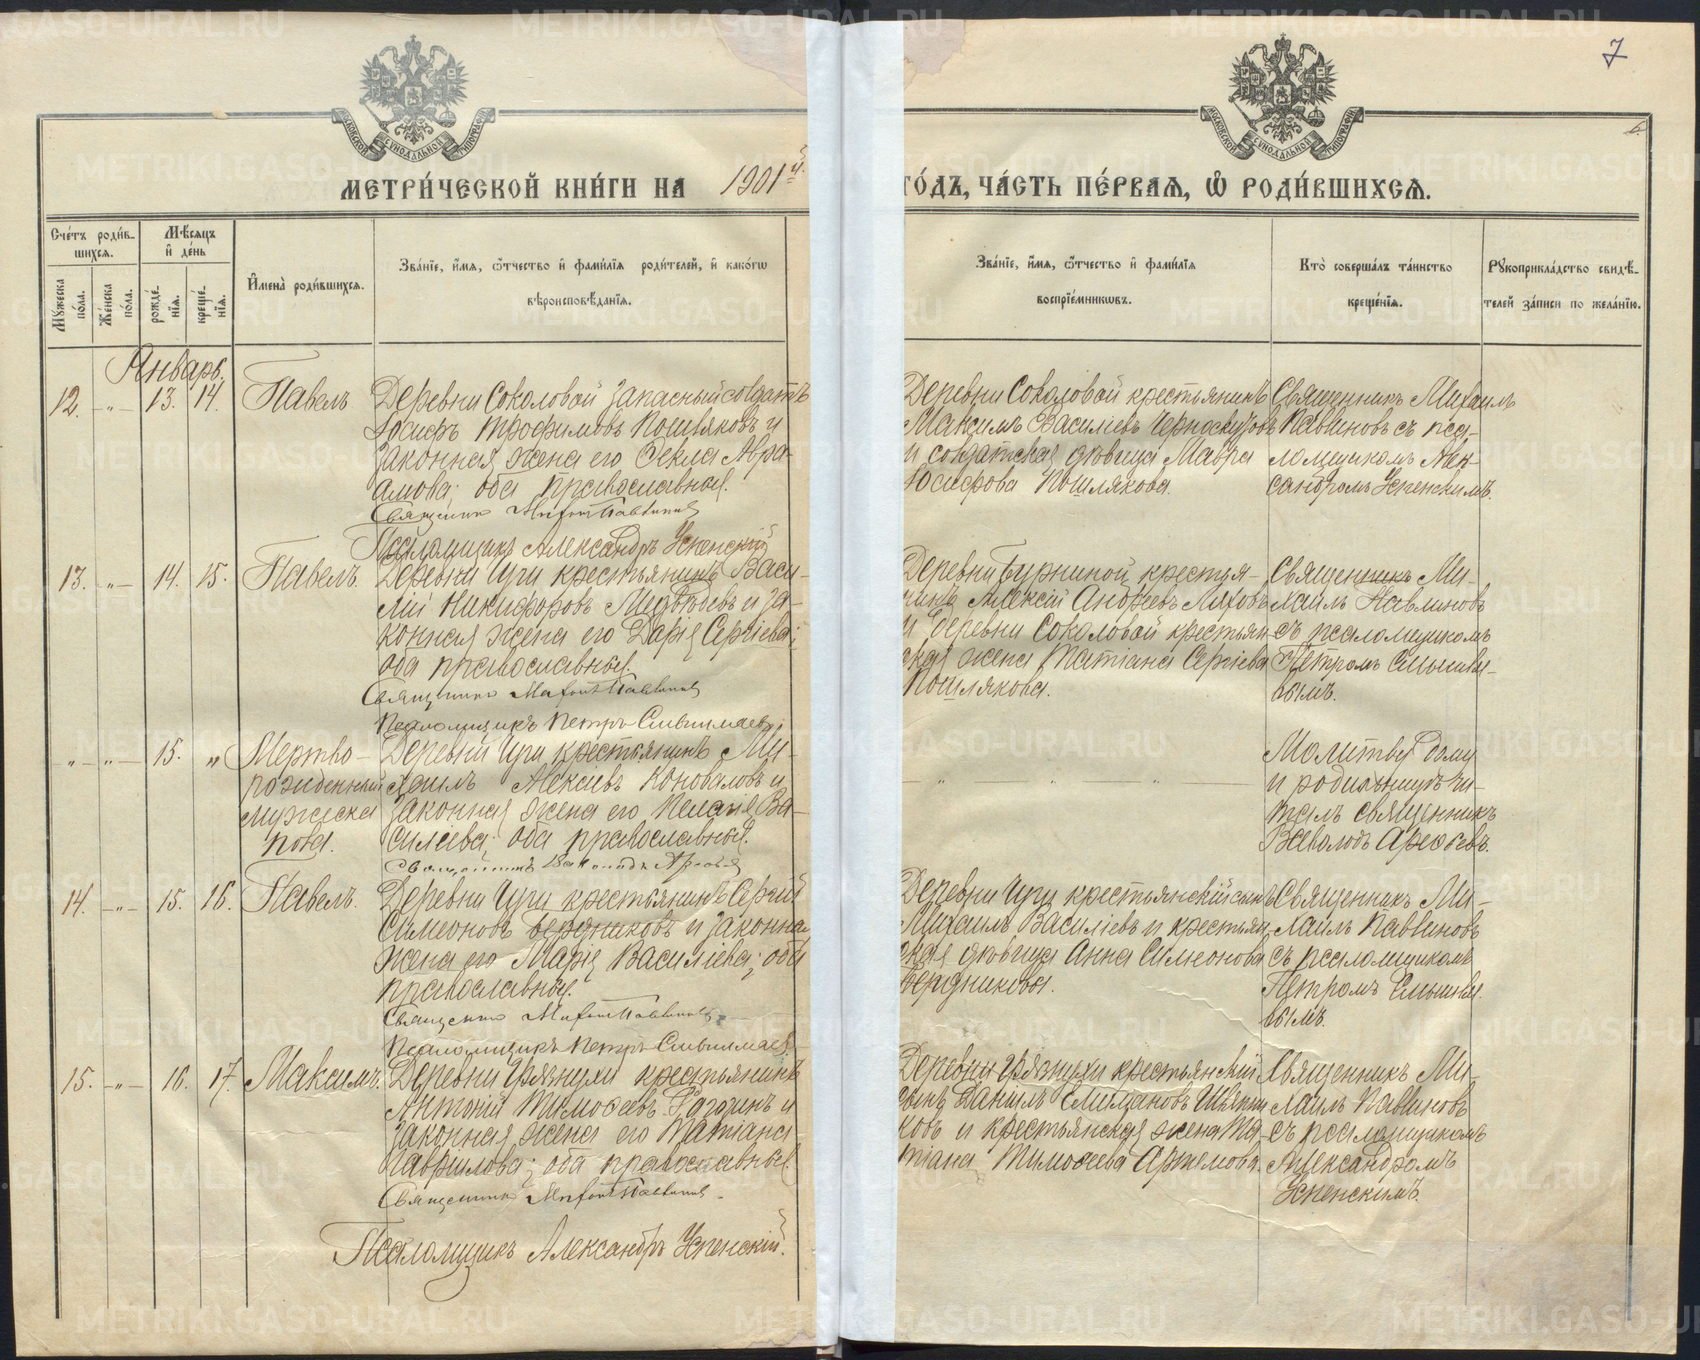 7
МОСКОВСКОЙ СѴНОДАЛЬНОЙ ТИПОГРАФІИ
МОСКОВСКОЙ СѴНОДАЛЬНОЙ ТИПОГРАФІИ
МЕТРИ́ЧЕСКОЙ КНИ́ГИ НА 1901й
ГО́ДЪ, ЧА́СТЬ ПЕ́РВАЯ, Ѽ РОДИ́ВШИХСЯ.
Сче́тъ роди́в-
шихся.
Мꙋжеска по́ла.
Же́нска по́ла.
Мѣ́сяцъ
и҆ де́нь
рожде́-
нїя.
креще́-
нїя.
И҆мена̀ роди́вшихся.
Зва́нїе, и҆́мя, ѻ҆́тчество и҆ фами́лїя роди́телей, и҆ како́гѡ
вѣроисповѣ́данїя.
Зва́нїе, и҆́мя, ѻ҆́тчество и҆ фами́лїя
воспрїе́мникѡвъ.
Кто̀ соверша́лъ та́инство
креще́нїя.
Рꙋкоприкла́дство свидѣ́-
телей за́писи по жела́нїю.
Январь.
12. -„- 13. 14.
Павелъ
Деревни Соколовой запасный солдатъ
Іосифъ Трофимовъ Пошляковъ и
законная жена его Ѳекла Авра-
амова; оба православные.
Священникъ Михаилъ Павлиновъ
Псаломщикъ Александръ Успенскій
Деревни Соколовой крестьянинъ
Максимъ Василіевъ Черноскутовъ
и солдатская дѣвица Мавра
Іосифова Пошлякова.
Священникъ Михаилъ
Павлиновъ съ пса-
ломщикомъ Алек-
сандромъ Успенскимъ.
13. „- 14. 15.
Павелъ.
Деревни Цуги крестьянинъ Васи-
лій Никифоровъ Медвѣдевъ и за-
конная жена его Дарія Сергіева;
оба православные.
Священникъ Михаилъ Павлиновъ
Псаломщикъ Петръ
крестья-
нинъ Алексій Андреевъ Ляховъ
и деревни Соколовой крестьян-
ская жена Татіана Сергіева
Пошлякова.
Священникъ Ми-
хаилъ Павлиновъ
съ псаломщикомъ
Петромъ
-„- -„- 15. „
Мертво-
рожденный
мужеска
пола.
Деревни Цуги крестьянинъ Ми-
хаилъ Алексіевъ Коноваловъ и
законная жена его Пелагія Ва-
силіева; оба православные.
Священникъ
- „ „ -
Молитву дому
и родильницѣ чи-
талъ священникъ
14. -„- 15. 16.
Павелъ.
Деревни Цуги крестьянинъ Сергій
Симеоновъ Бердниковъ и законная
жена его Марія Василіева; оба
православные.
Священникъ Михаилъ Павлиновъ
Псаломщикъ Петръ
Деревни Цуги крестьянскій сынъ
Михаилъ Василіевъ и крестьян-
ская дѣвица Анна Симеонова
Бердниковы.
Священникъ Ми-
хаилъ Павлиновъ
съ псаломщикомъ
Петромъ
15. -„- 16. 17.
Максимъ.
Деревни Грязнухи крестьянинъ
Антоній Тимоѳеевъ и
законная жена его Татіана
Гавріилова; оба православные.
Священникъ Михаилъ Павлиновъ
Псаломщикъ Александръ Успенскій.
Деревни Грязнухи крестьянскій
сынъ Даніилъ
ковъ и крестьянская жена Та-
тіана Тимоѳеева Артемова.
Священникъ Ми-
хаилъ Павлиновъ
съ псаломщикомъ
Александромъ
Успенскимъ.
METRIKI.GASO-URAL.RU